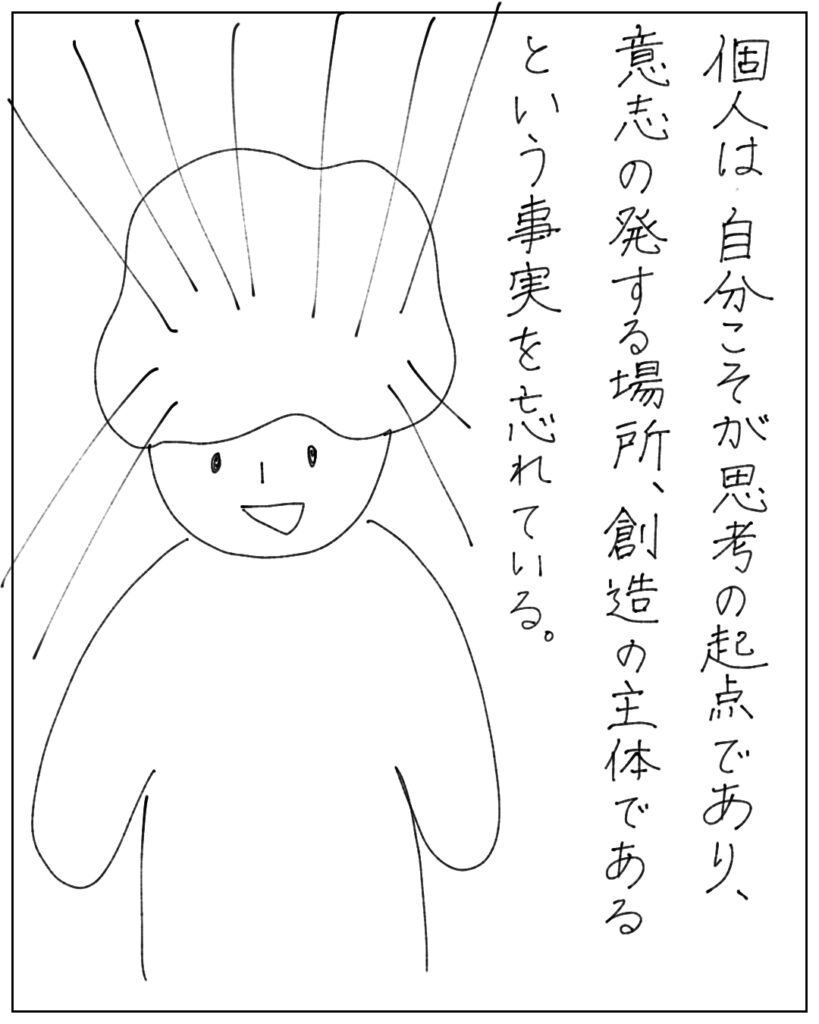 個人は自分こそが思考の起点であり、
意志の発する場所、創造の主体である
という事実を忘れている。